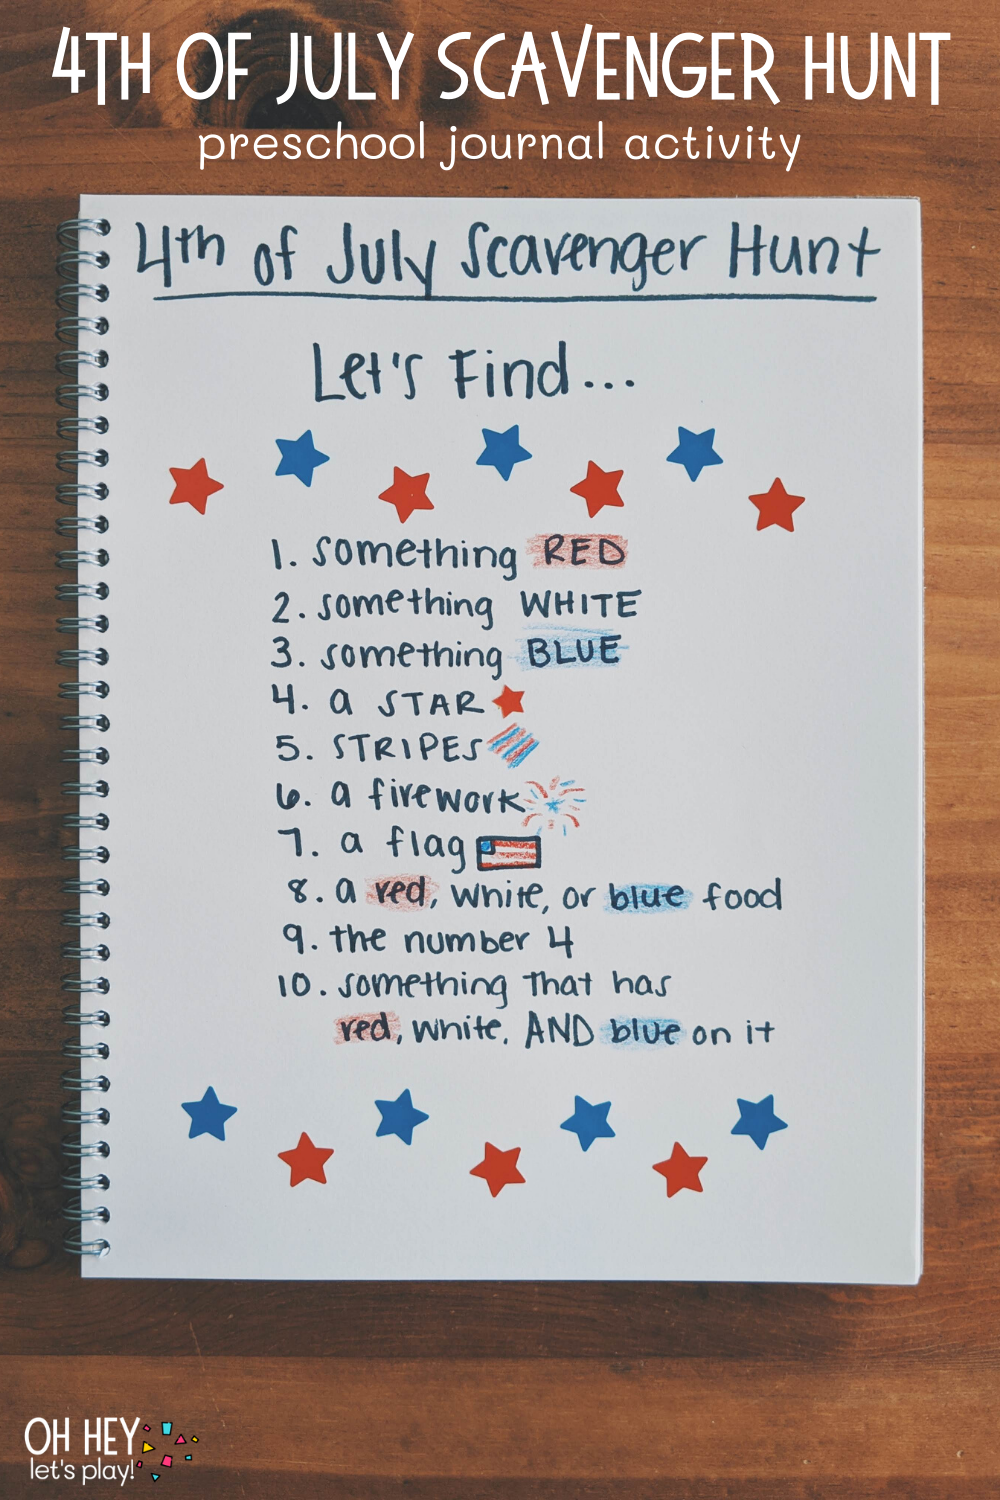 4TH OF JULY SCAVENGER HUNT
preschool journal activity
4th of July Scavenger Hunt
Let's Find...
1. something RED
2. something WHITE
3. something BLUE
4. a STAR
5. STRIPES
6. a firework
7. a flag
8. a red, white, or blue food
9. the number 4
10. something that has
red, white, AND blue on it
OH HEY
let's play!